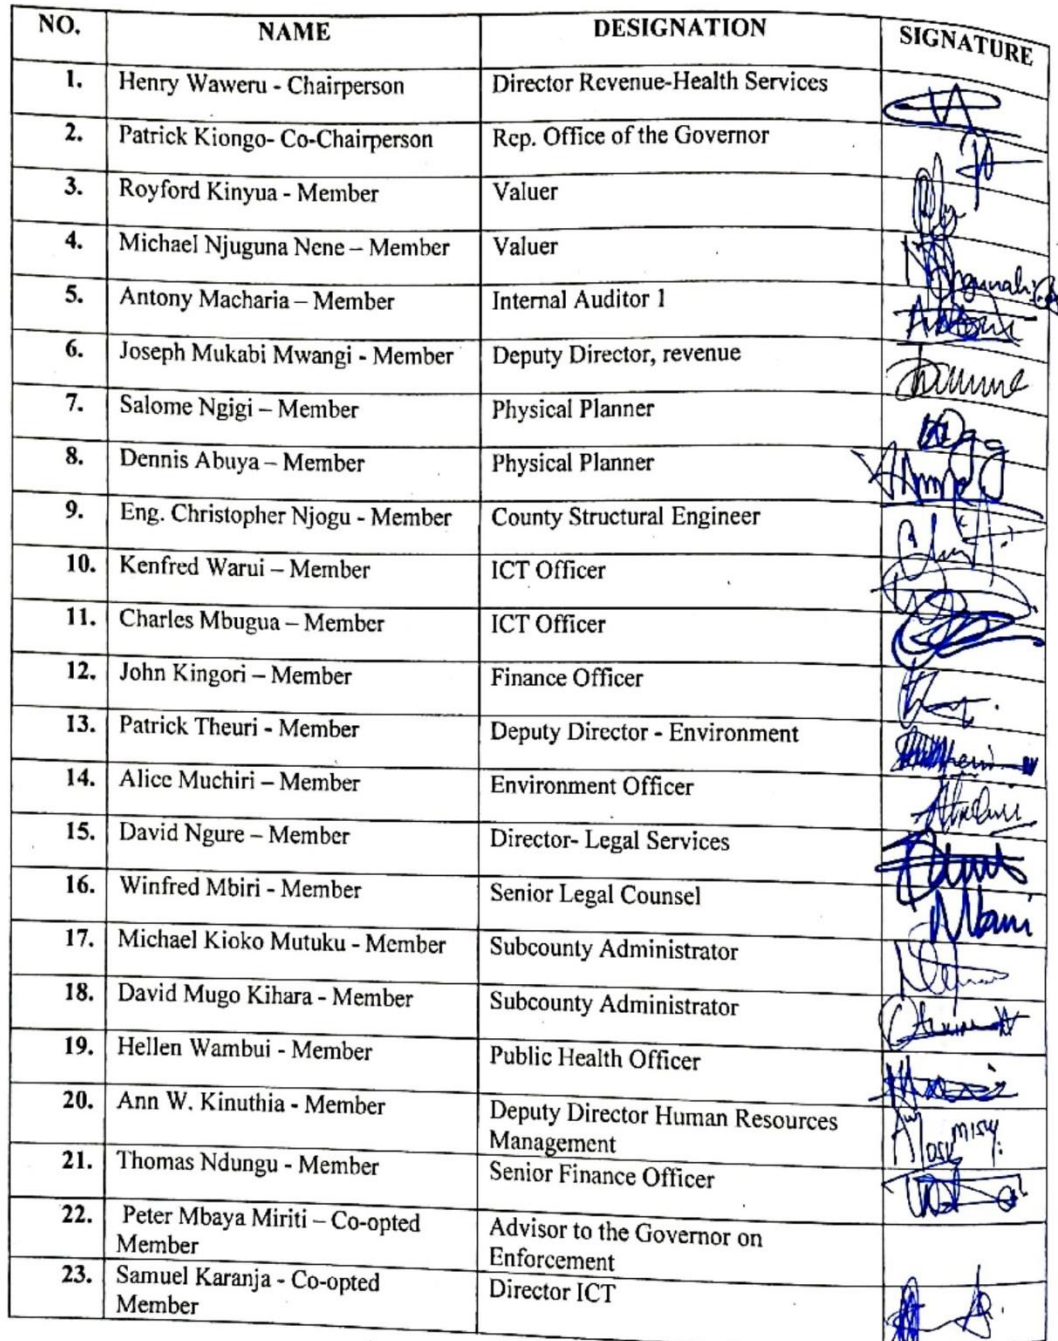 NO. NAME DESIGNATION SIGNATURE
1. Henry Waweru - Chairperson Director Revenue-Health Services
2. Patrick Kiongo- Co-Chairperson Rep. Office of the Governor
3. Royford Kinyua - Member Valuer
4. Michael Njuguna Nene – Member Valuer
5. Antony Macharia – Member Internal Auditor 1
6. Joseph Mukabi Mwangi - Member Deputy Director, revenue
7. Salome Ngigi – Member Physical Planner
8. Dennis Abuya – Member Physical Planner
9. Eng. Christopher Njogu - Member County Structural Engineer
10. Kenfred Warui – Member ICT Officer
11. Charles Mbugua – Member ICT Officer
12. John Kingori – Member Finance Officer
13. Patrick Theuri – Member Deputy Director - Environment
14. Alice Muchiri – Member Environment Officer
15. David Ngure – Member Director- Legal Services
16. Winfred Mbiri - Member Senior Legal Counsel
17. Michael Kioko Mutuku - Member Subcounty Administrator
18. David Mugo Kihara - Member Subcounty Administrator
19. Hellen Wambui - Member Public Health Officer
20. Ann W. Kinuthia - Member Deputy Director Human Resources
Management
21. Thomas Ndungu - Member Senior Finance Officer
22. Peter Mbaya Miriti – Co-opted Advisor to the Governor on
Member Enforcement
23. Samuel Karanja - Co-opted Director ICT
Member